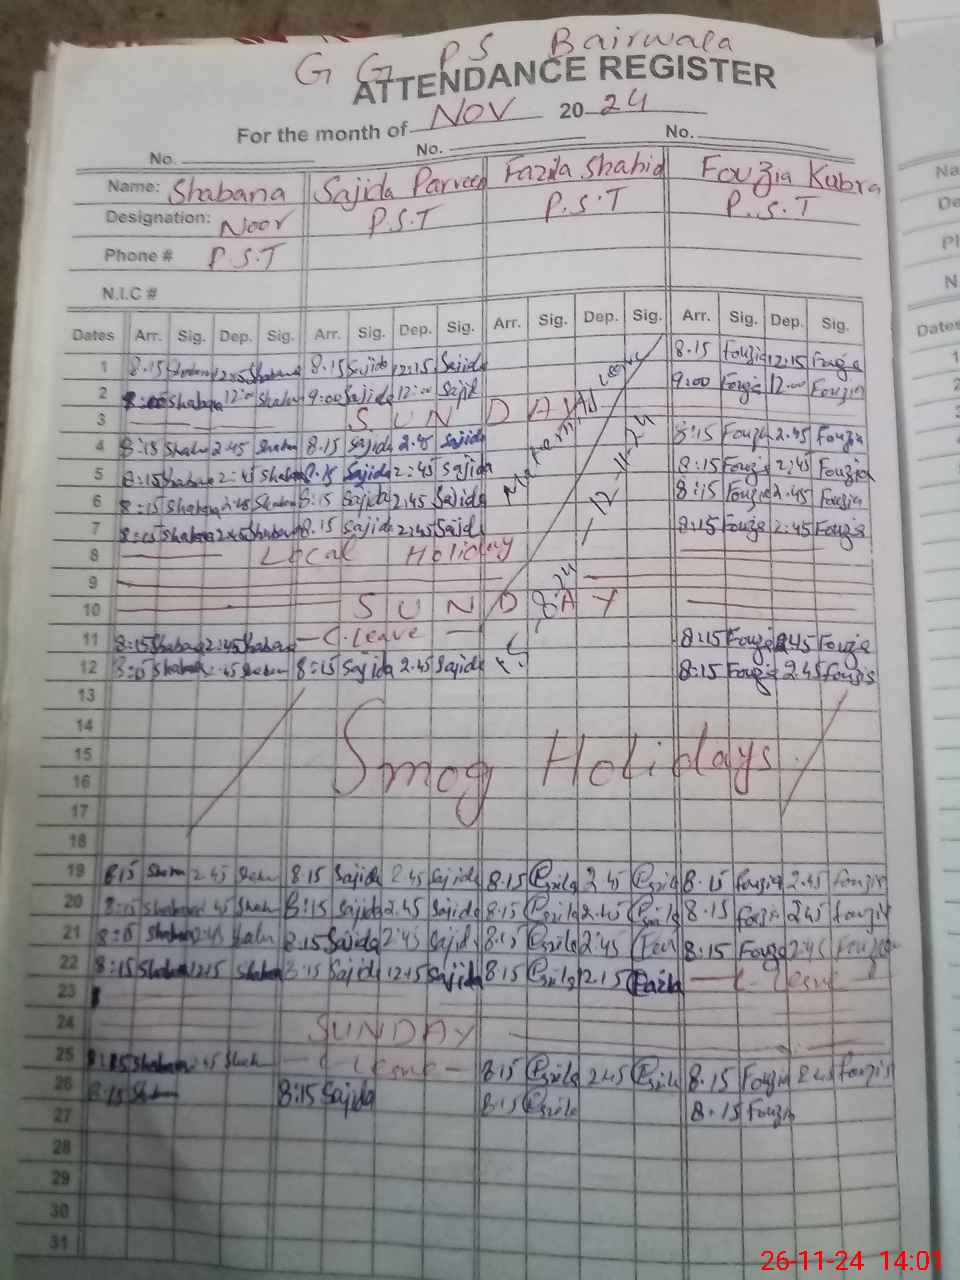 G G P S Bairwala
ATTENDANCE REGISTER
For the month of NOV 20 24
No. No. No.
Name: Shabana Sajida Parveen Fazila Shahid Fouzia Kubra
Designation: Noor P.S.T P.S.T P.S.T
Phone # P.S.T
N.I.C #
Dates Arr. Sig. Dep. Sig. Arr. Sig. Dep. Sig. Arr. Sig. Dep. Sig. Arr. Sig. Dep. Sig.
1 8.15 Shabana 12:15 Shabana 8.15 Sajida 12:15 Sajida 8.15 Fouzia 12:15 Fouzia
2 Shabana 12:00 Shaban 9:00 Sajida 12:00 Sajid 9:00 Fouzia 12:00 Fouzia
3 SUNDAY
4 8:15 Shaban 2.45 Shaban 8.15 Sajida 2.45 Sajida 8:15 Fouzia 2.45 Fouzia
5 8:15 Shaban 2:45 Shaban 8.15 Sajida 2:45 Sajida 8:15 Fouzia 2:45 Fouzia
6 8:15 Shabana 2:45 Shaban 8:15 Sajida 2.45 Sajida 8:15 Fouzia 2.45 Fouzia
7 8:15 Shabana 2:45 Shabana 8.15 Sajida 2:45 Sajida 8:15 Fouzia 2:45 Fouzia
8 Local Holiday
9
10 SUNDAY
11 8:15 Shabana 2:45 Shabana C.Leave 8:15 Fouzia 2.45 Fouzia
12 8:15 Shabana 2.45 Shaban 8:15 Sajida 2.45 Sajida 8:15 Fouzia 2.45 Fouzia
13
14
15 Smog Holidays
16
17
18
19 8:15 Shaban 2.45 Shaban 8.15 Sajida 2.45 Sajida 8.15 Fazila 2.45 Fazila 8.15 Fouzia 2.45 Fouzia
20 8:15 Shabana 2.45 Shaban 8:15 Sajida 2.45 Sajida 8:15 Fazila 2:45 Fazila 8.15 Fouzia 2:45 Fouzia
21 8:15 Shabana 2:45 Shaban 8.15 Sajida 2:45 Sajida 8:15 Fazila 2:45 8:15 Fouzia 2:45 Fouzia
22 8:15 Shabana 12:15 Shaban 8:15 Sajida 12:15 Sajida 8.15 Fazila 12.15 Fazila C.Leave
23
24 SUNDAY
25 8:15 Shaban 2.45 Shaban C.Leave 8.15 Fazila 2.45 Fazila 8.15 Fouzia 2.45 Fouzia
26 8:15 Shaban 8:15 Sajida 8:15 Fazila 8.15 Fouzia
27
28
29
30
31
Maternity Leave
12-11-24
Na
De
Ph
N
Dates
26-11-24 14:01